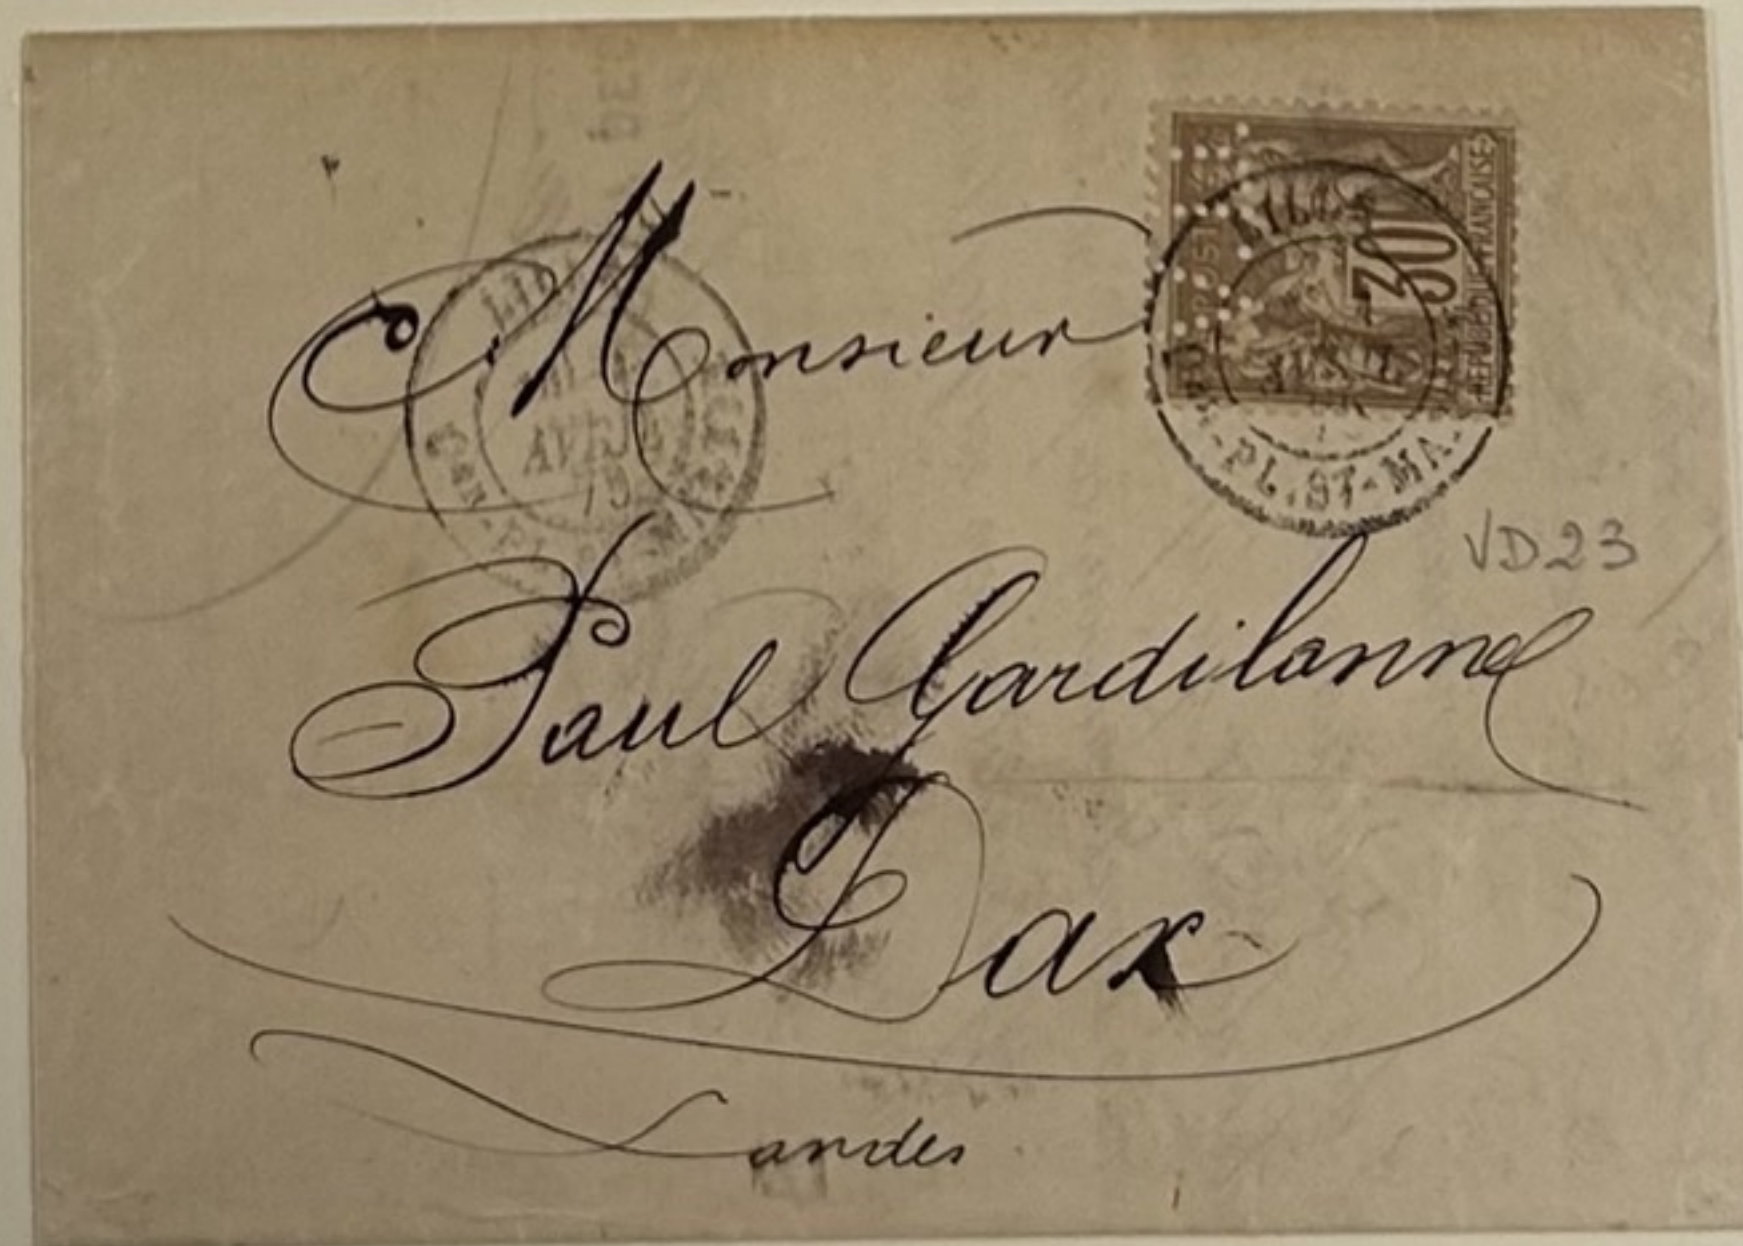 Monsieur
Paul Gardilanne
Dax
Landes
VD23
30
REPUBLIQUE FRANÇAISE
LILLE
PL. ST-MA
AVRIL
79